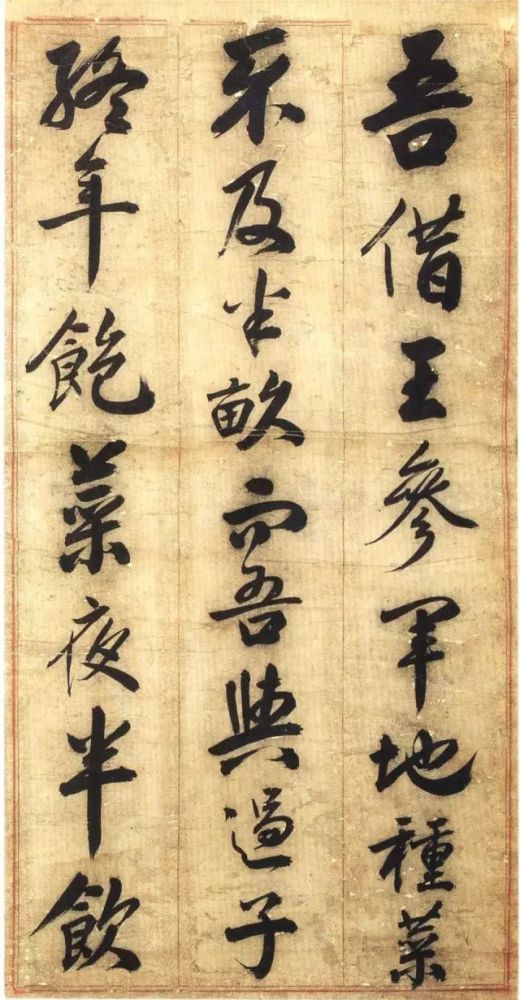 吾借王參軍地種菜
不及半畝而吾與過子
終年飽菜夜半飲